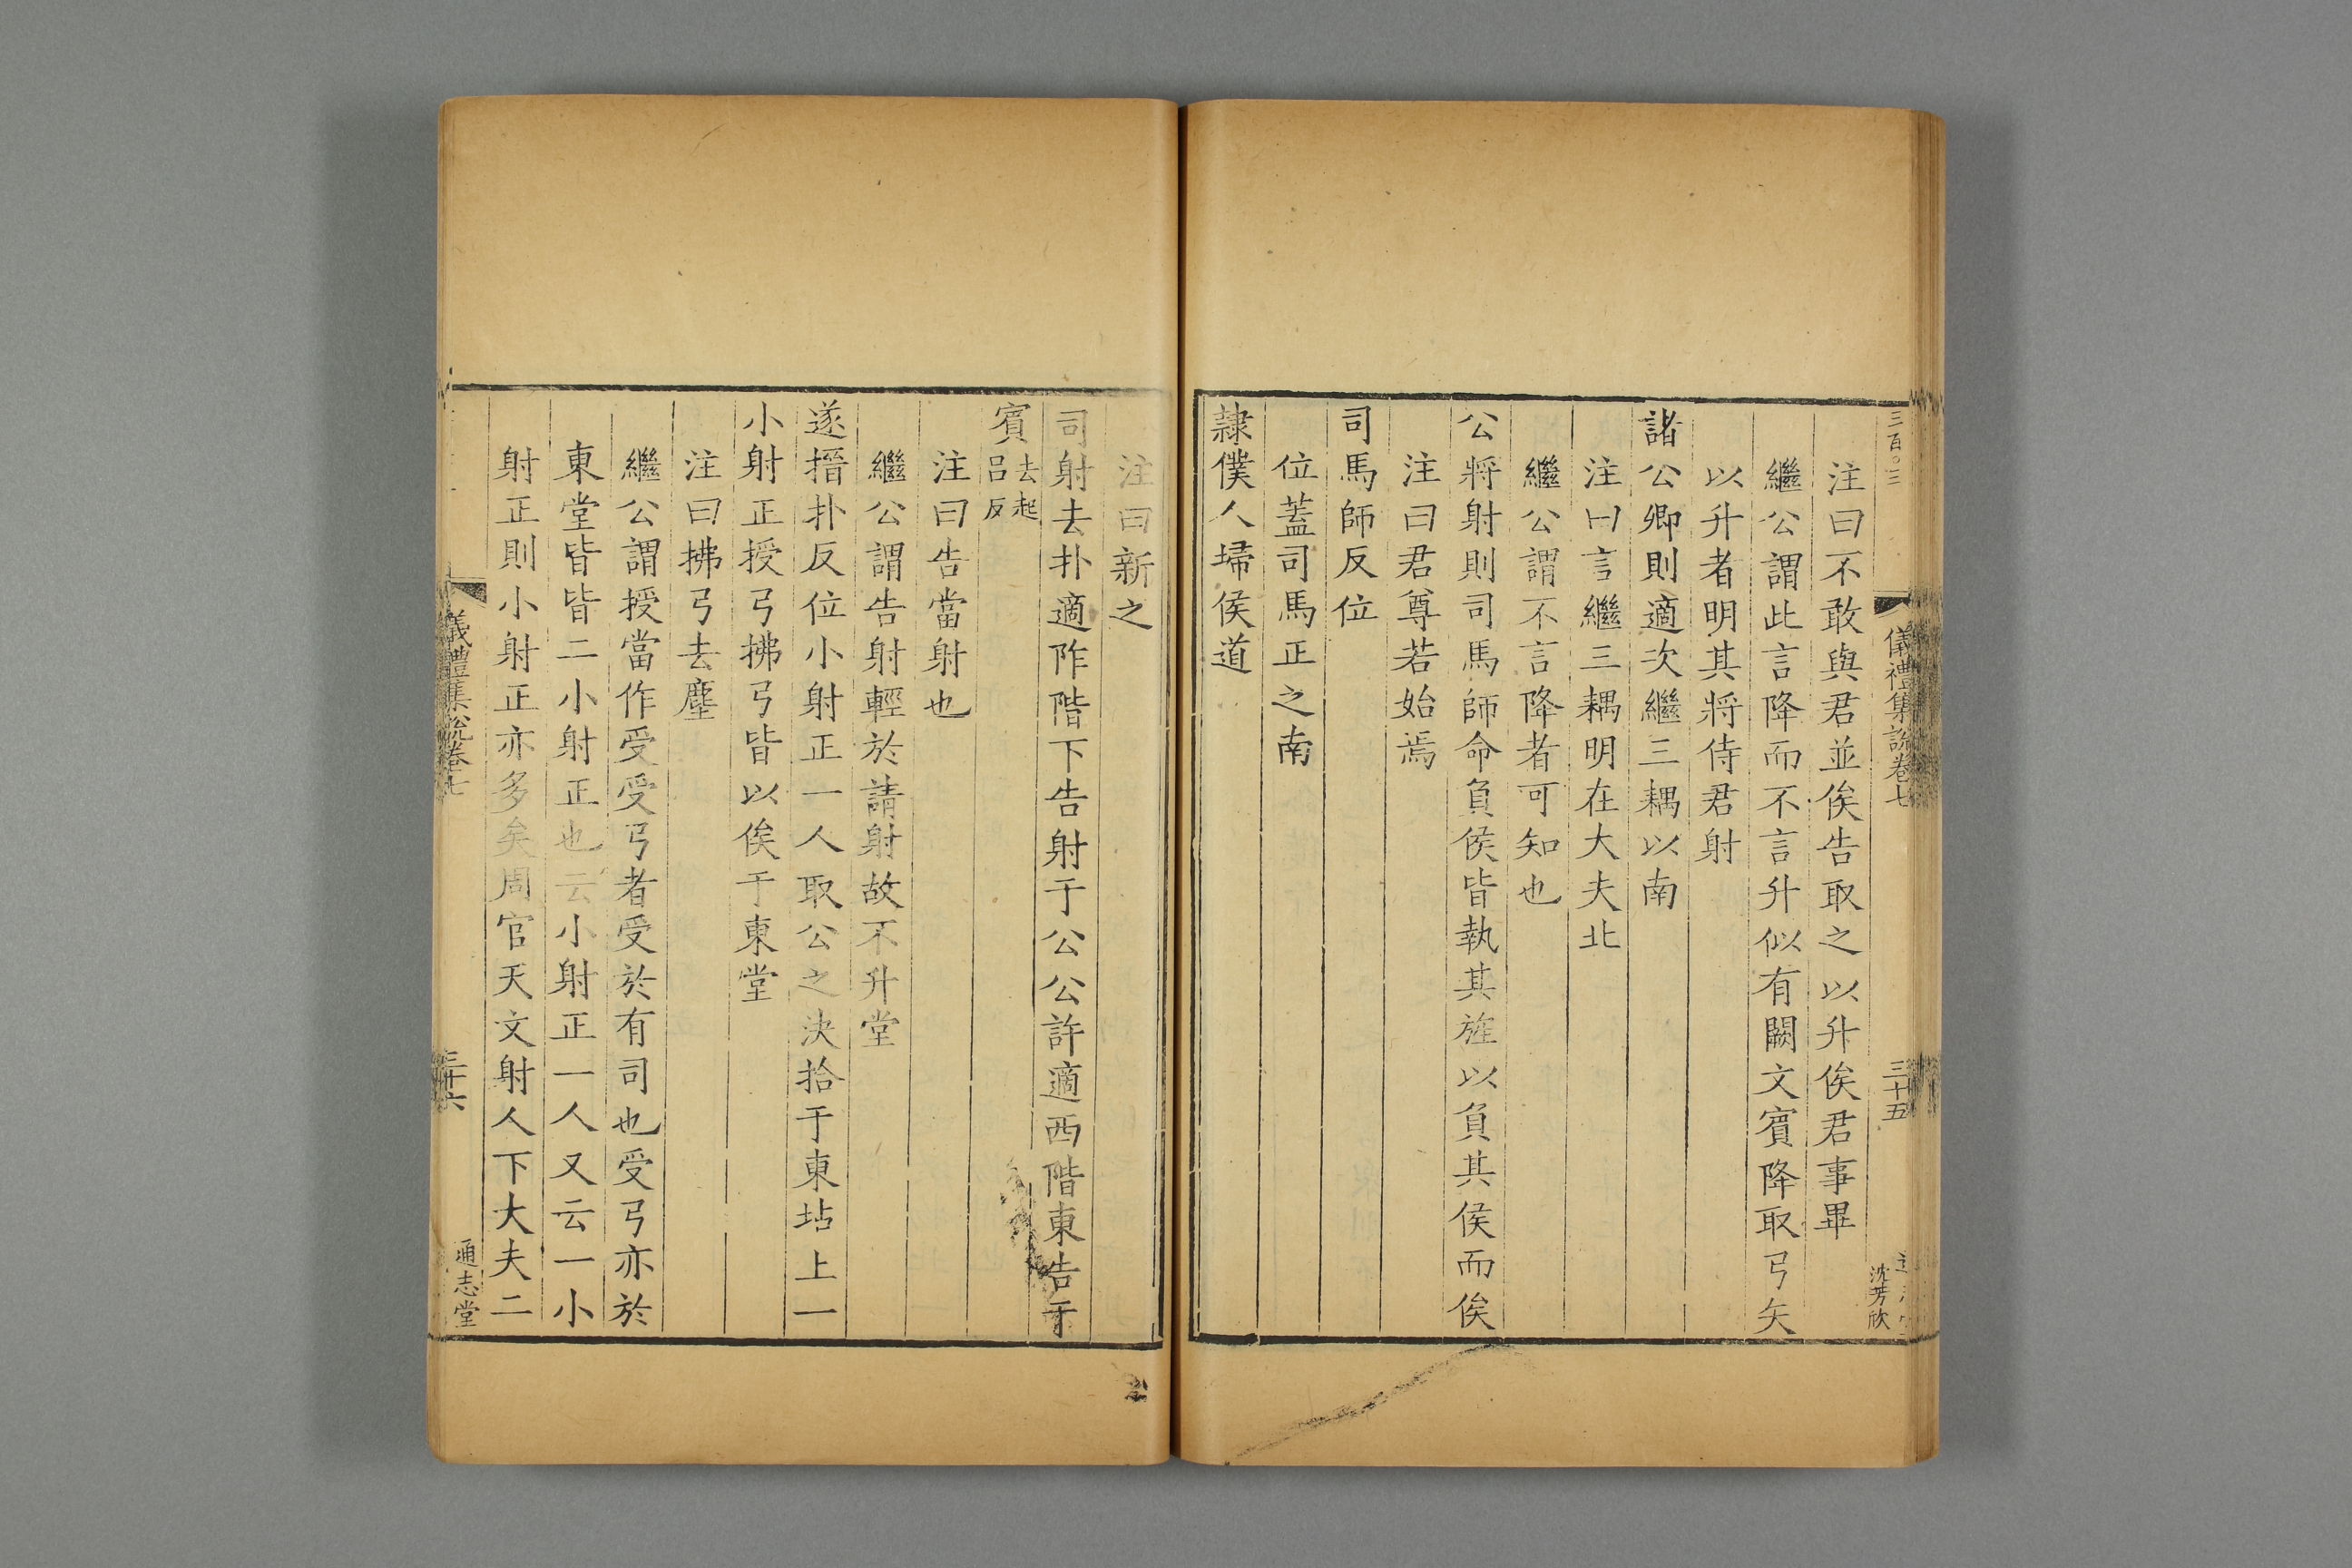 三百〇三
儀禮集說卷七
三十五
沈芳欣
注曰不敢與君並俟告取之以升俟君事畢
繼公謂此言降而不言升似有闕文賓降取弓矢
以升者明其將侍君射
諸公卿則適次繼三耦以南
注曰言繼三耦明在大夫北
繼公謂不言降者可知也
公將射則司馬師命負侯皆執其旌以負其侯而俟
注曰君尊若始焉
司馬師反位
位蓋司馬正之南
隷僕人埽侯道
注曰新之
司射去扑適阼階下告射于公公許適西階東告于
賓去起呂反
注曰告當射也
繼公謂告射輕於請射故不升堂
遂搢扑反位小射正一人取公之決拾于東坫上一
小射正授弓拂弓皆以俟于東堂
注曰拂弓去塵
繼公謂授當作受受弓者受於有司也受弓亦於
東堂皆皆二小射正也云小射正一人又云一小
射正則小射正亦多矣周官天文射人下大夫二
儀禮集說卷七
三十六
通志堂